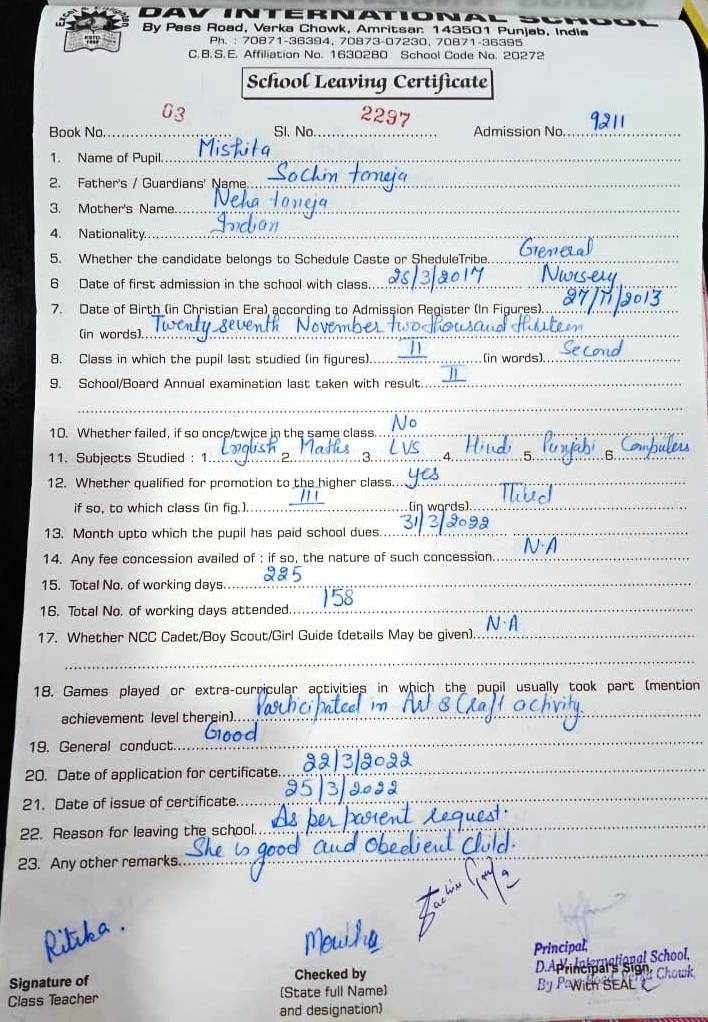 DAV INTERNATIONAL SCHOOL
By Pass Road, Verka Chowk, Amritsar. 143501 Punjab, India
Ph. : 70871-36394, 70873-07230, 70871-36395
C.B.S.E. Affiliation No. 1630280 School Code No. 20272
School Leaving Certificate
Book No. 03 Sl. No. 2297 Admission No. 9211
1. Name of Pupil Mishita
2. Father's / Guardians' Name Sachin taneja
3. Mother's Name Neha taneja
4. Nationality Indian
5. Whether the candidate belongs to Schedule Caste or SheduleTribe General
6 Date of first admission in the school with class 28/3/2017 Nursery
7. Date of Birth (in Christian Era) according to Admission Register (In Figures) 27/11/2013
(in words) Twenty seventh November two thousand thirteen
8. Class in which the pupil last studied (in figures) II (in words) Second
9. School/Board Annual examination last taken with result II
10. Whether failed, if so once/twice in the same class No
11. Subjects Studied : 1 English 2. Maths 3. EVS 4. Hindi 5. Punjabi 6. Computers
12. Whether qualified for promotion to the higher class yes
if so, to which class (in fig.) III (in words) Third
13. Month upto which the pupil has paid school dues 31/3/2022
14. Any fee concession availed of : if so, the nature of such concession N.A
15. Total No. of working days 225
16. Total No. of working days attended 158
17. Whether NCC Cadet/Boy Scout/Girl Guide (details May be given) N.A
18. Games played or extra-curricular activities in which the pupil usually took part (mention
achievement level therein) Participated in Art & Craft activity.
19. General conduct Good
20. Date of application for certificate 22/3/2022
21. Date of issue of certificate 25/3/2022
22. Reason for leaving the school As per parent request.
23. Any other remarks She is good and obedient child.
Ritika.
Signature of
Class Teacher
Checked by
(State full Name)
and designation)
Principal,
D.A.V. International School,
Principal's Sign.
By Pass Road, Verka Chowk,
With SEAL